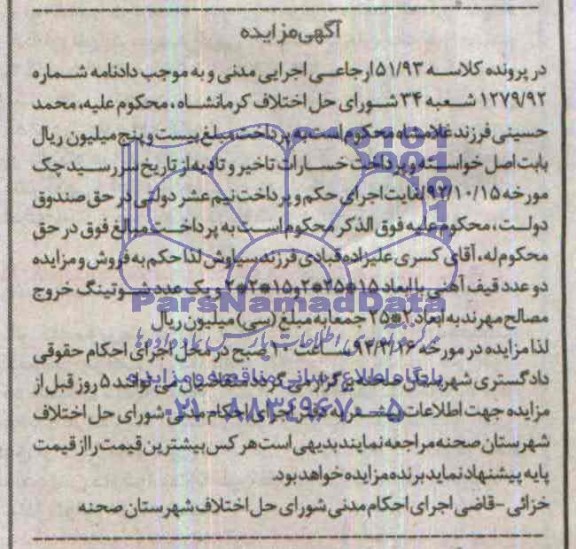 آگهی مزایده
در پرونده کلاسه ۵۱/۹۳ ارجاعی اجرایی مدنی و به موجب دادنامه شماره
۱۲۷۹/۹۲ شعبه ۳۴ شورای حل اختلاف کرمانشاه، محکوم علیه، محمد
حسینی فرزند غلامشاه محکوم است به پرداخت مبلغ بیست و پنج میلیون ریال
بابت اصل خواسته و پرداخت خسارات تاخیر و تادیه از تاریخ سررسید چک
مورخه ۹۲/۱۰/۱۵ لغایت اجرای حکم و پرداخت نیم عشر دولتی در حق صندوق
دولت، محکوم علیه فوق الذکر محکوم است به پرداخت مبالغ فوق در حق
محکوم له، آقای کسری علیزاده قبادی فرزند سیاوش لذا حکم به فروش و مزایده
دو عدد قیف آهنی با ابعاد و یک عدد شوتینگ خروج
ParsNamadData
مصالح مهرند به ابعاد ۲*۲۵ جمعا به مبلغ (سی) میلیون ریال
لذا مزایده در مورخه ساعت ۱۰ صبح در محل اجرای احکام حقوقی
دادگستری شهرستان صحنه برگزار می گردد متقاضیان می توانند ۵ روز قبل از
مزایده جهت اطلاعات به دفتر اجرای احکام مدنی شورای حل اختلاف
۰۲۱-۸۸۳۴۹۶۷۰-۵
شهرستان صحنه مراجعه نمایند بدیهی است هر کس بیشترین قیمت را از قیمت
پایه پیشنهاد نماید برنده مزایده خواهد بود.
خزائی - قاضی اجرای احکام مدنی شورای حل اختلاف شهرستان صحنه